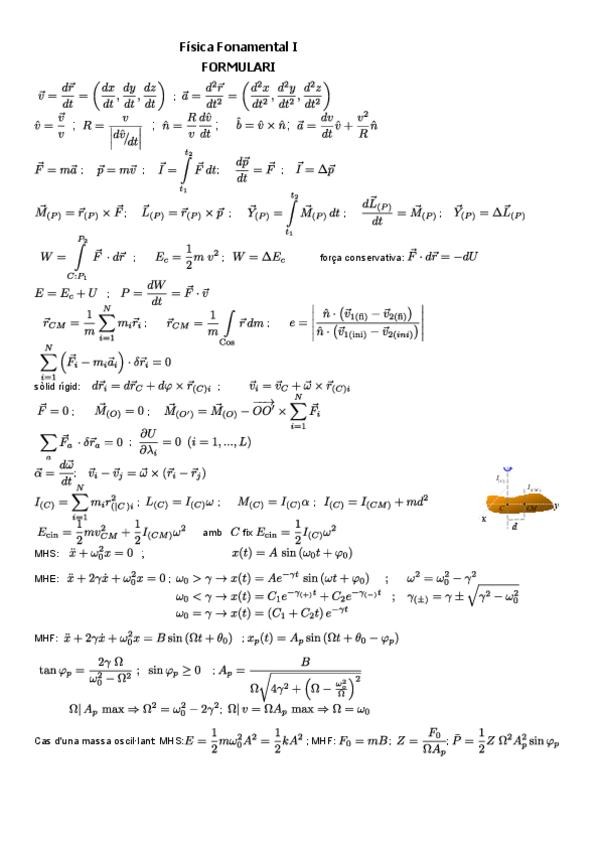 Física Fonamental I
FORMULARI
$\vec{v} = \frac{d\vec{r}}{dt} = \left(\frac{dx}{dt}, \frac{dy}{dt}, \frac{dz}{dt}\right)$ ; $\vec{a} = \frac{d^2\vec{r}}{dt^2} = \left(\frac{d^2x}{dt^2}, \frac{d^2y}{dt^2}, \frac{d^2z}{dt^2}\right)$
$\hat{v} = \frac{\vec{v}}{v}$ ; $R = \frac{v}{\left|d\hat{v}/dt\right|}$ ; $\hat{n} = \frac{R}{v}\frac{d\hat{v}}{dt}$ ; $\hat{b} = \hat{v} \times \hat{n}$ ; $\vec{a} = \frac{dv}{dt}\hat{v} + \frac{v^2}{R}\hat{n}$
$\vec{F} = m\vec{a}$ ; $\vec{p} = m\vec{v}$ ; $\vec{I} = \int_{t_1}^{t_2} \vec{F}\,dt$ ; $\frac{d\vec{p}}{dt} = \vec{F}$ ; $\vec{I} = \Delta\vec{p}$
$\vec{M}_{(P)} = \vec{r}_{(P)} \times \vec{F}$ ; $\vec{L}_{(P)} = \vec{r}_{(P)} \times \vec{p}$ ; $\vec{Y}_{(P)} = \int_{t_1}^{t_2} \vec{M}_{(P)}\,dt$ ; $\frac{d\vec{L}_{(P)}}{dt} = \vec{M}_{(P)}$ ; $\vec{Y}_{(P)} = \Delta\vec{L}_{(P)}$
$W = \int_{C:P_1}^{P_2} \vec{F} \cdot d\vec{r}$ ; $E_c = \frac{1}{2}m\,v^2$ ; $W = \Delta E_c$ força conservativa: $\vec{F} \cdot d\vec{r} = -dU$
$E = E_c + U$ ; $P = \frac{dW}{dt} = \vec{F} \cdot \vec{v}$
$\vec{r}_{CM} = \frac{1}{m}\sum_{i=1}^{N} m_i\vec{r}_i$ ; $\vec{r}_{CM} = \frac{1}{m}\int_{\text{Cos}} \vec{r}\,dm$ ; $e = \left|\frac{\hat{n} \cdot (\vec{v}_{1(\text{fi})} - \vec{v}_{2(\text{fi})})}{\hat{n} \cdot (\vec{v}_{1(\text{ini})} - \vec{v}_{2(ini)})}\right|$
$\sum_{i=1}^{N} \left(\vec{F}_i - m_i\vec{a}_i\right) \cdot \delta\vec{r}_i = 0$
sòlid rígid: $d\vec{r}_i = d\vec{r}_C + d\varphi \times \vec{r}_{(C)i}$ ; $\vec{v}_i = \vec{v}_C + \vec{\omega} \times \vec{r}_{(C)i}$
$\vec{F} = 0$ ; $\vec{M}_{(O)} = 0$ ; $\vec{M}_{(O')} = \vec{M}_{(O)} - \overrightarrow{OO'} \times \sum_{i=1}^{N} \vec{F}_i$
$\sum_a \vec{F}_a \cdot \delta\vec{r}_a = 0$ ; $\frac{\partial U}{\partial \lambda_i} = 0$ $(i = 1, ..., L)$
$\vec{\alpha} = \frac{d\vec{\omega}}{dt}$; $\vec{v}_i - \vec{v}_j = \vec{\omega} \times (\vec{r}_i - \vec{r}_j)$
$I_{(C)} = \sum_{i=1}^{N} m_i r^2_{(|C)i}$ ; $L_{(C)} = I_{(C)}\omega$ ; $M_{(C)} = I_{(C)}\alpha$ ; $I_{(C)} = I_{(CM)} + md^2$
$E_{\text{cin}} = \frac{1}{2}mv^2_{CM} + \frac{1}{2}I_{(CM)}\omega^2$ amb $C$ fix $E_{\text{cin}} = \frac{1}{2}I_{(C)}\omega^2$
x C CM y
d
MHS: $\ddot{x} + \omega_0^2 x = 0$ ; $x(t) = A\sin(\omega_0 t + \varphi_0)$
MHE: $\ddot{x} + 2\gamma\dot{x} + \omega_0^2 x = 0$ ; $\omega_0 > \gamma \rightarrow x(t) = Ae^{-\gamma t}\sin(\omega t + \varphi_0)$ ; $\omega^2 = \omega_0^2 - \gamma^2$
$\omega_0 < \gamma \rightarrow x(t) = C_1 e^{-\gamma_{(+)}t} + C_2 e^{-\gamma_{(-)}t}$ ; $\gamma_{(\pm)} = \gamma \pm \sqrt{\gamma^2 - \omega_0^2}$
$\omega_0 = \gamma \rightarrow x(t) = (C_1 + C_2 t)\,e^{-\gamma t}$
MHF: $\ddot{x} + 2\gamma\dot{x} + \omega_0^2 x = B\sin(\Omega t + \theta_0)$ ; $x_p(t) = A_p\sin(\Omega t + \theta_0 - \varphi_p)$
$\tan\varphi_p = \frac{2\gamma\,\Omega}{\omega_0^2 - \Omega^2}$ ; $\sin\varphi_p \geq 0$ ; $A_p = \frac{B}{\Omega\sqrt{4\gamma^2 + \left(\Omega - \frac{\omega_0^2}{\Omega}\right)^2}}$
$\Omega|\,A_p$ max $\Rightarrow \Omega^2 = \omega_0^2 - 2\gamma^2$; $\Omega|\,v = \Omega A_p$ max $\Rightarrow \Omega = \omega_0$
Cas d'una massa oscil·lant MHS: $E = \frac{1}{2}m\omega_0^2 A^2 = \frac{1}{2}kA^2$ ; MHF: $F_0 = mB$; $Z = \frac{F_0}{\Omega A_p}$; $\bar{P} = \frac{1}{2}Z\,\Omega^2 A_p^2 \sin\varphi_p$